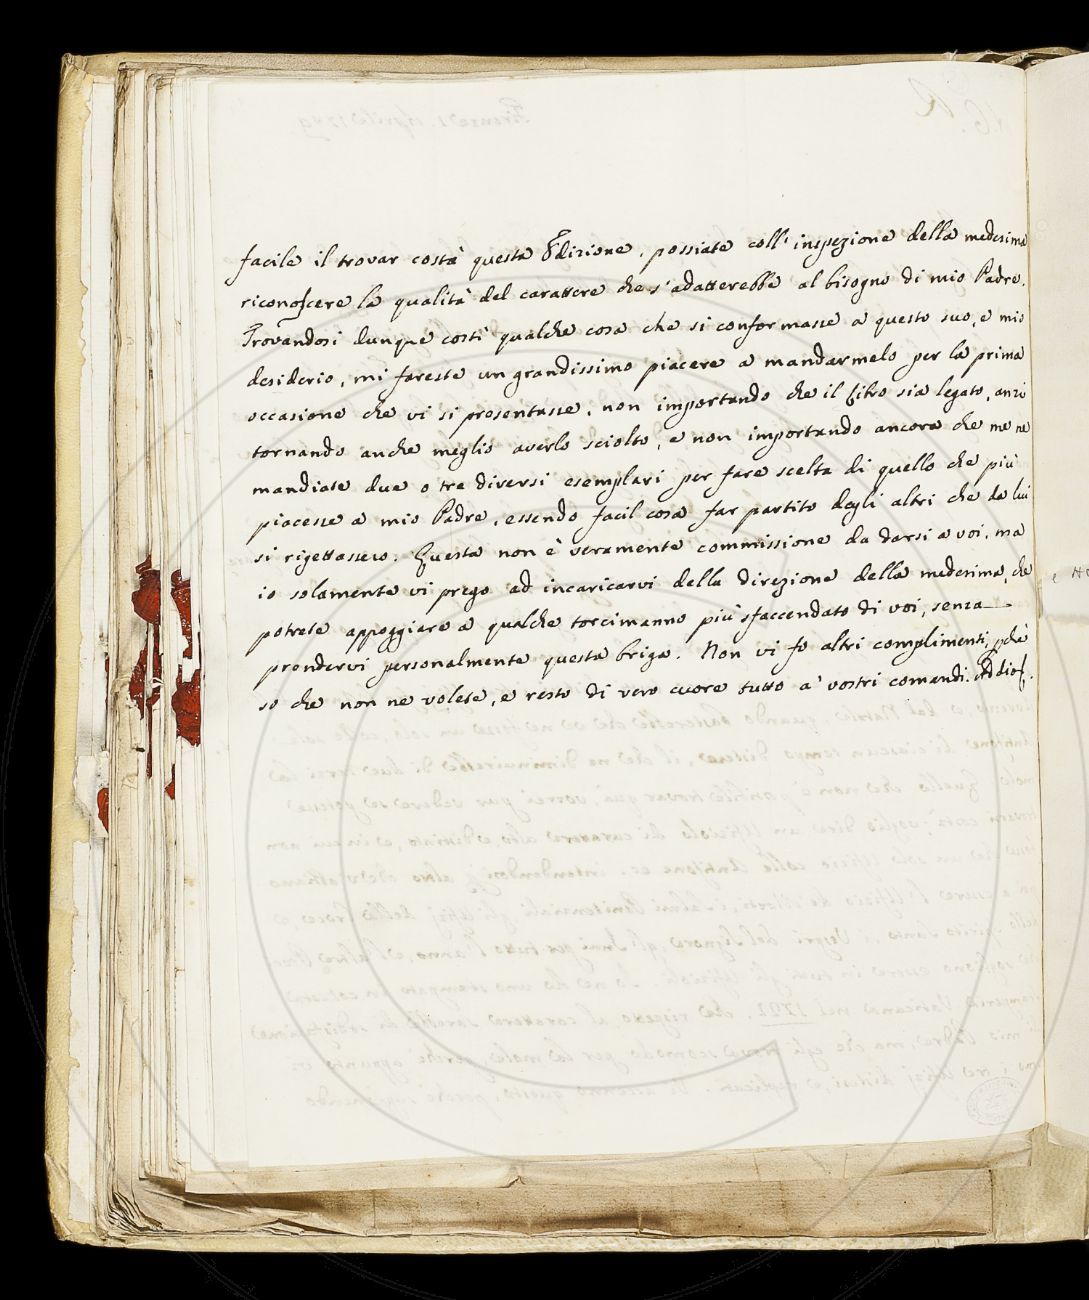 facile il trovar costà questa Edizione, possiate coll' inspezione della medesima
riconoscere la qualità del carattere che s'adatterebbe al bisogno di mio Padre.
Trovandosi dunque costì qualche cosa che si conformasse a questo suo, e mio
desiderio, mi fareste un grandissimo piacere a mandarmelo per la prima
occasione che vi si presentasse, non importando che il libro sia legato, anzi
tornando anche meglio averlo sciolto, e non importando ancora che me ne
mandiate due o tre diversi esemplari per fare scelta di quello che più
piacesse a mio Padre, essendo facil cosa far partito degli altri che da lui
si rigettassero. Questa non è veramente commissione da darsi a voi, ma
io solamente vi prego ad incaricarvi della direzione della medesima, che
potrete appoggiare a qualche torcimanno più sfaccendato di voi, senza
prendervi personalmente questa briga. Non vi fo altri complimenti, pchè
so che non ne volete, e resto di vero cuore tutto a' vostri comandi. Addio.